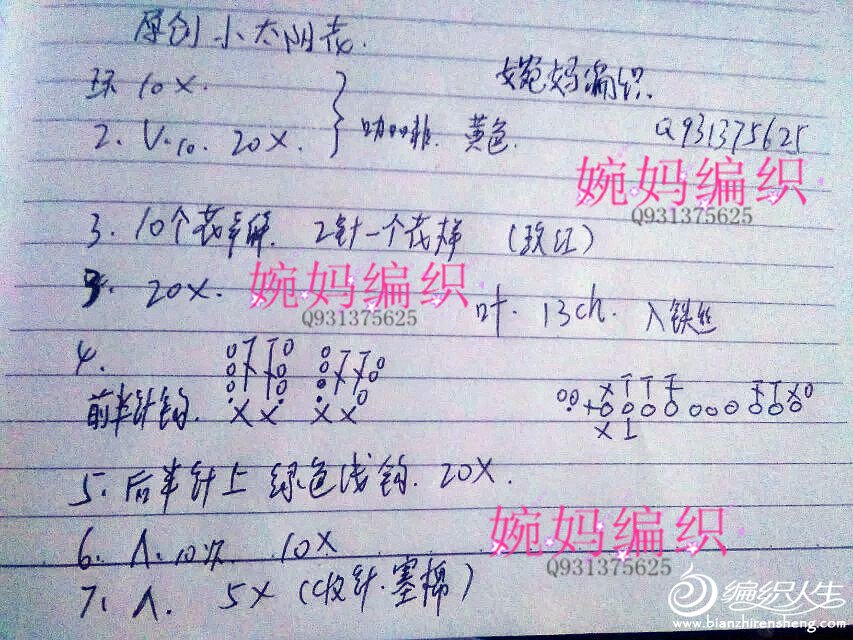 原创小太阳花.
环 10X.
2. V.10. 20X. } 咖啡. 黄色.
婉妈编织.
Q931375625
婉妈编织
Q931375625
3. 10个花瓣. 2针一个花样 (玫红)
3. 20X.
婉妈编织
Q931375625
叶. 13ch. 入铁丝
4.
前半针钩. XX XX
5. 后半针上 绿色浅钩. 20X.
6. Λ.10次 10X
7. Λ. 5X (收针.塞棉)
婉妈编织
Q931375625
编织人生
www.bianzhirensheng.com